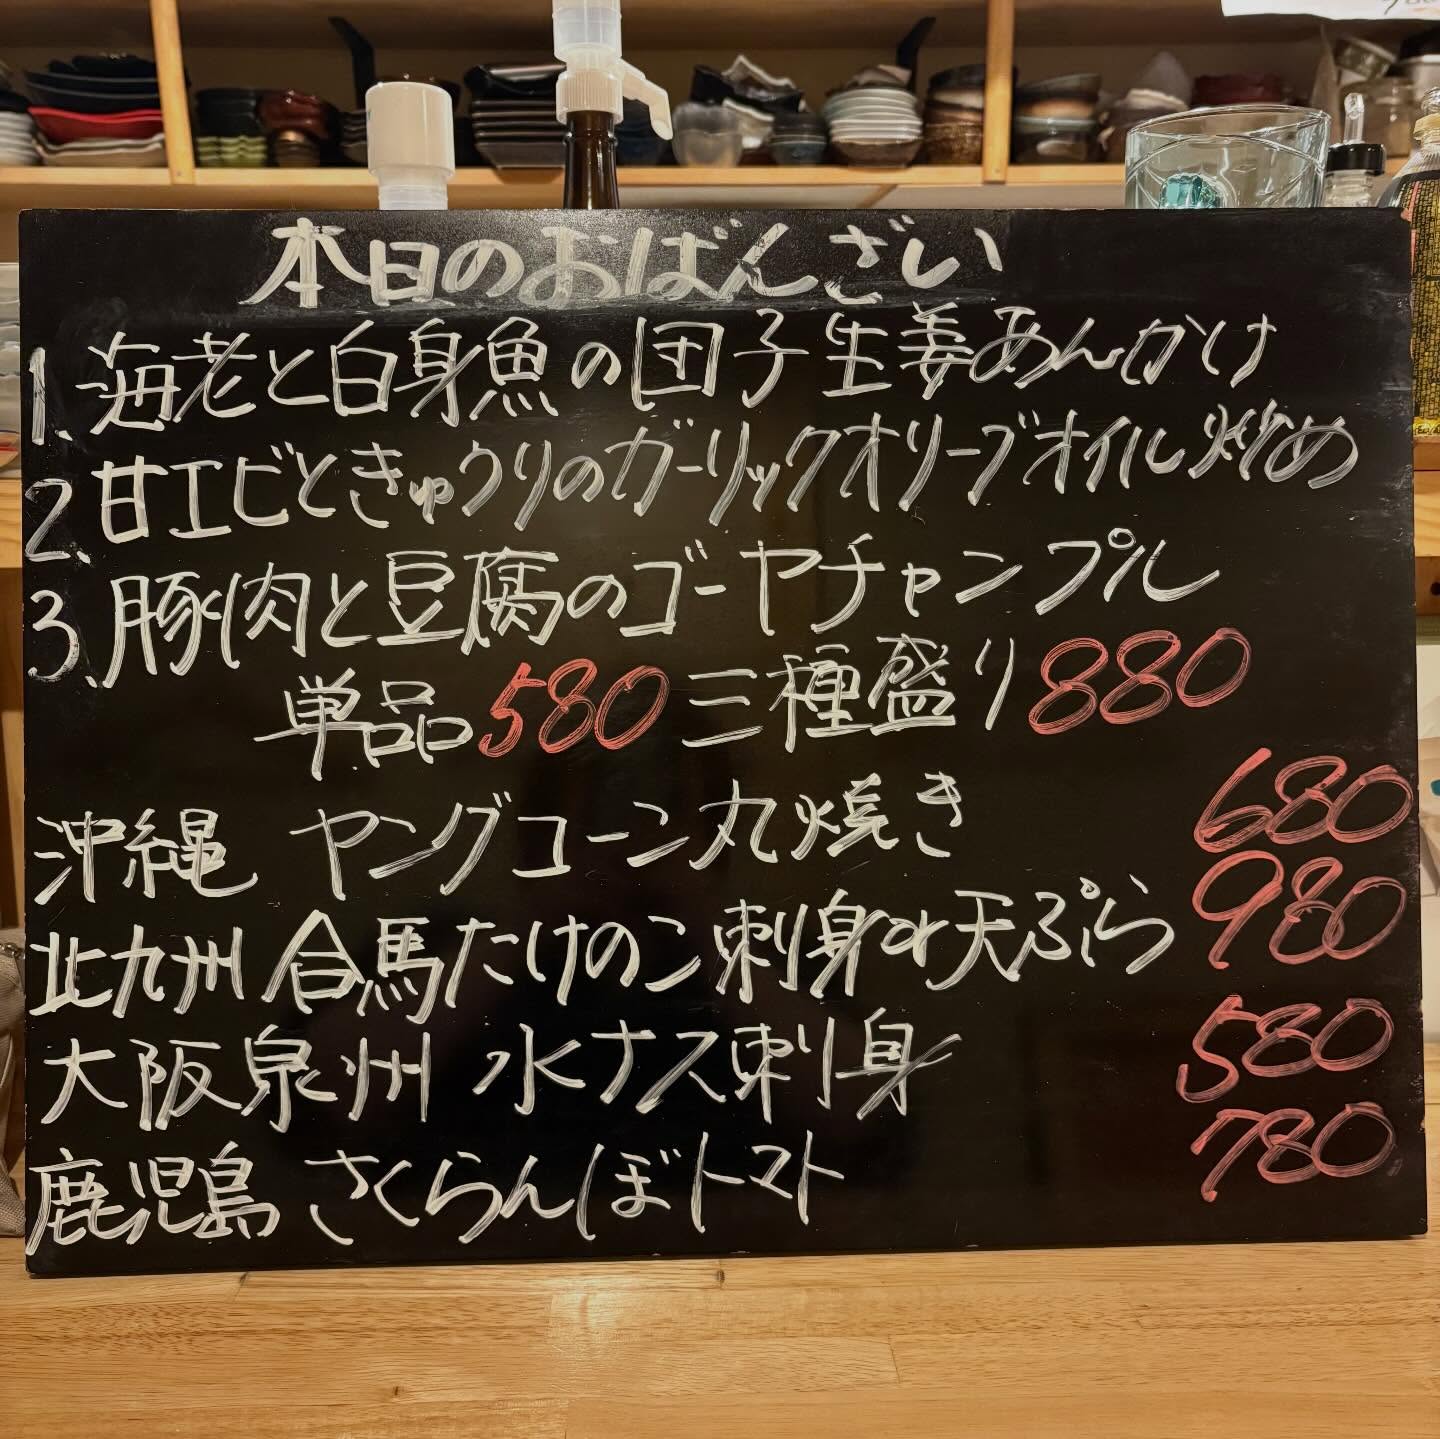 本日のおばんざい
1. 海老と白身魚の団子生姜あんかけ
2. 甘エビときゅうりのガーリックオリーブオイル炒め
3. 豚肉と豆腐のゴーヤチャンプル
単品580 三種盛り880
沖縄 ヤングコーン丸焼き 680
北九州 合馬たけのこ刺身or天ぷら 980
大阪泉州 水ナス刺身 580
鹿児島 さくらんぼトマト 780